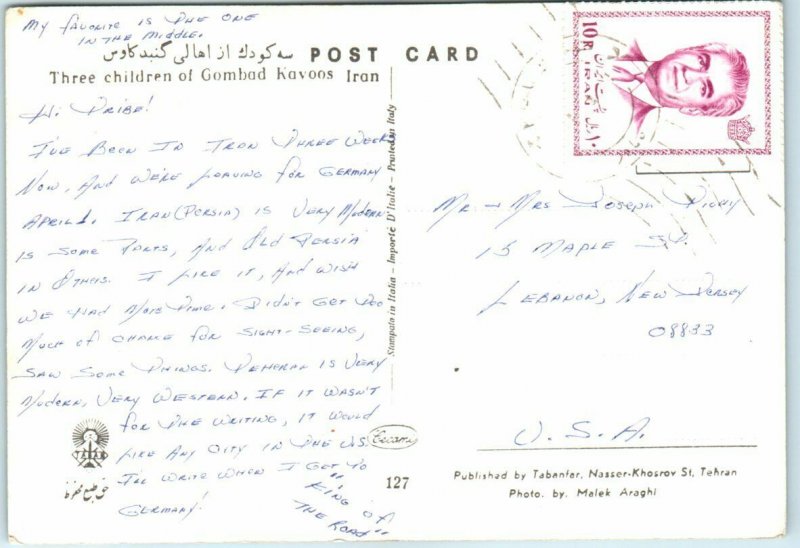 My favorite is the one
in the middle.
سه کودک از اهالی گنبد کاوس POST CARD
Three children of Gombad Kavoos Iran
Hi Tribe!
I've been in Iran three weeks
now, and we're leaving for Germany
April 1. Iran (Persia) is very modern
is some parts, and old Persia
in others. I like it, and wish
we had more time. Didn't get too
much of chance for sight-seeing,
saw some things. Teheran is very
modern, very western. If it wasn't
for the writing, it would
like any city in the U.S.
I'll write when I get to
Germany!
"King of
the Road"
TABAN
حق طبع محفوظ
Stampato in Italia - Importé D'Italie - Printed in Italy
127
10 R.
IRAN
۱۰ ریال
Mr + Mrs Joseph
15 Maple St.
Lebanon, New Jersey
08833
U.S.A.
Published by Tabanfar, Nasser-Khosrov St, Tehran
Photo. by. Malek Araghi